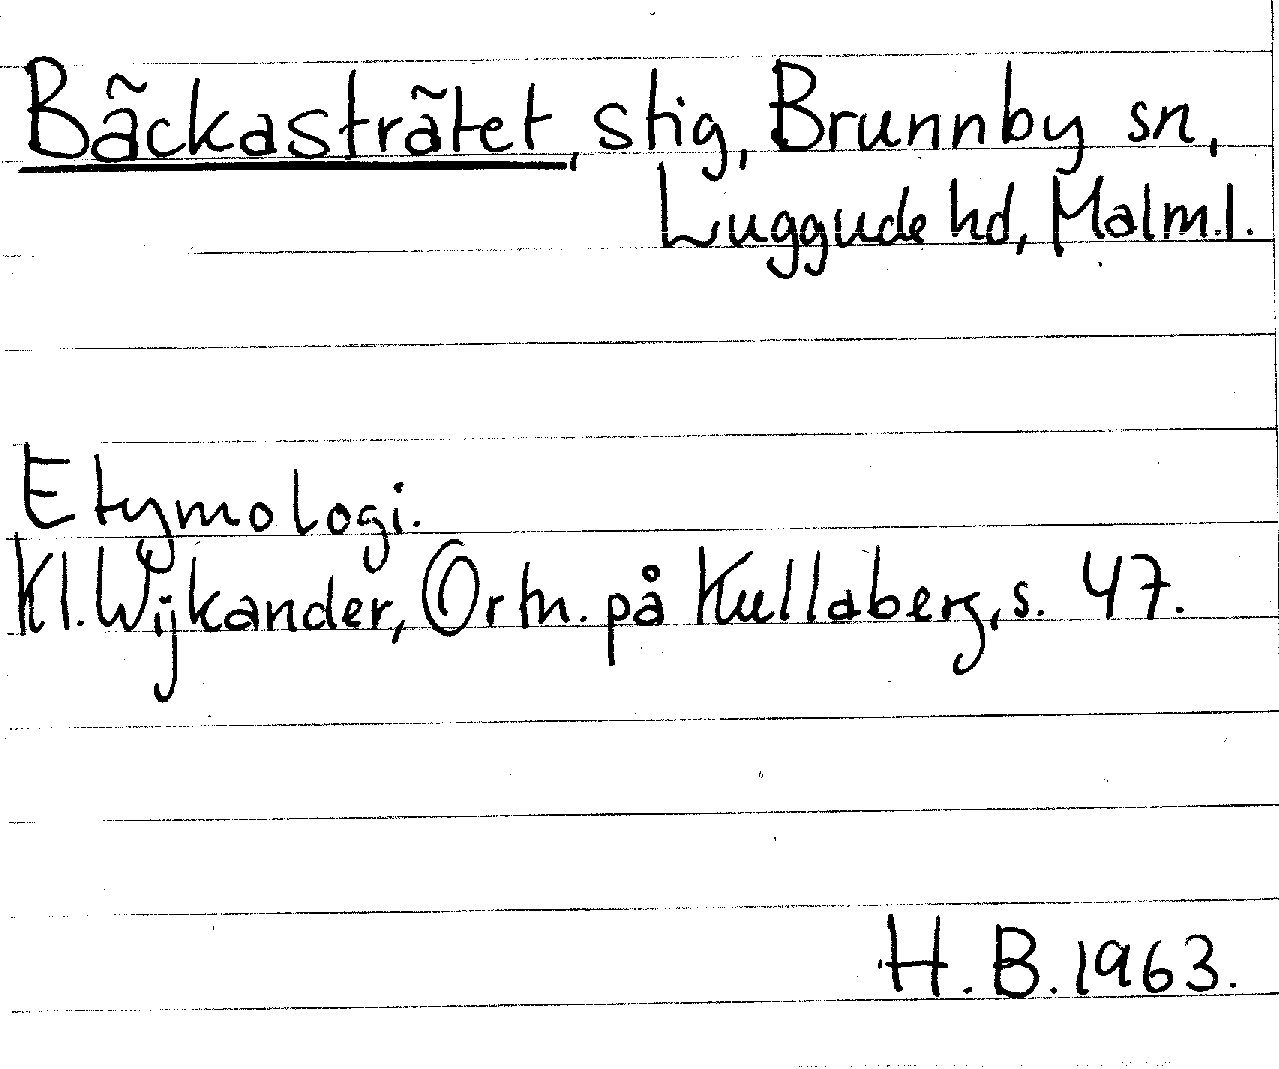 Bäckasträtet, stig, Brunnby sn,
Luggude hd, Malm.l.
Etymologi.
Kl. Wijkander, Ortn. på Kullaberg, s. 47.
H. B. 1963.